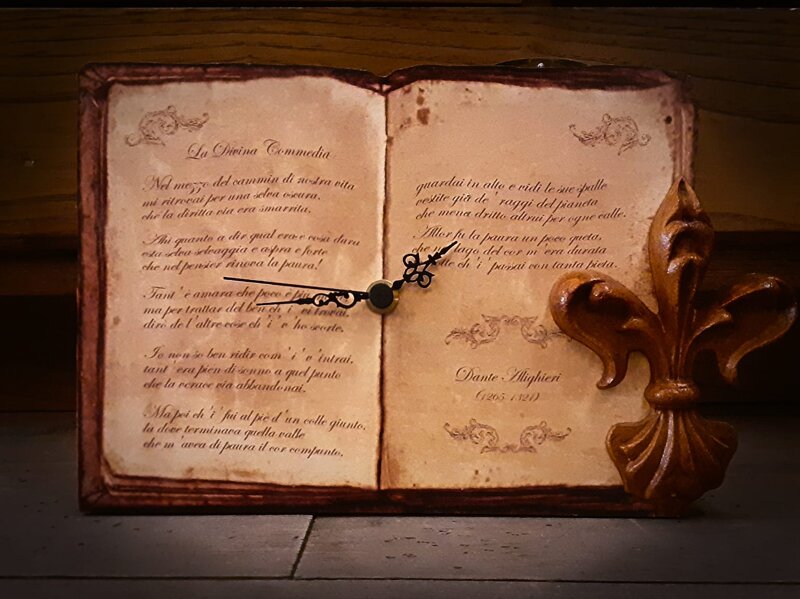 La Divina Commedia
Nel mezzo del cammin di nostra vita
mi ritrovai per una selva oscura,
che la diritta via era smarrita.
Ahi quanto a dir qual era e cosa dura
esta selva selvaggia e aspra e forte
che nel pensier rinova la paura!
Tant' è amara che poco è più
ma per trattar del ben ch' i' vi trovai,
dirò de l'altre cose ch' i' v'ho scorte.
Io non so ben ridir com' i' v'intrai,
tant' era pien di sonno a quel punto
che la verace via abbandonai.
Ma poi ch'i' fui al piè d'un colle giunto,
la dove terminava quella valle
che m'avea di paura il cor compunto,
guardai in alto e vidi le sue spalle
vestite già de' raggi del pianeta
che mena dritto altrui per ogne calle.
Allor fu la paura un poco queta,
che lago del cor m'era durata
ch' i' passai con tanta pieta.
Dante Alighieri
(1265-1321)